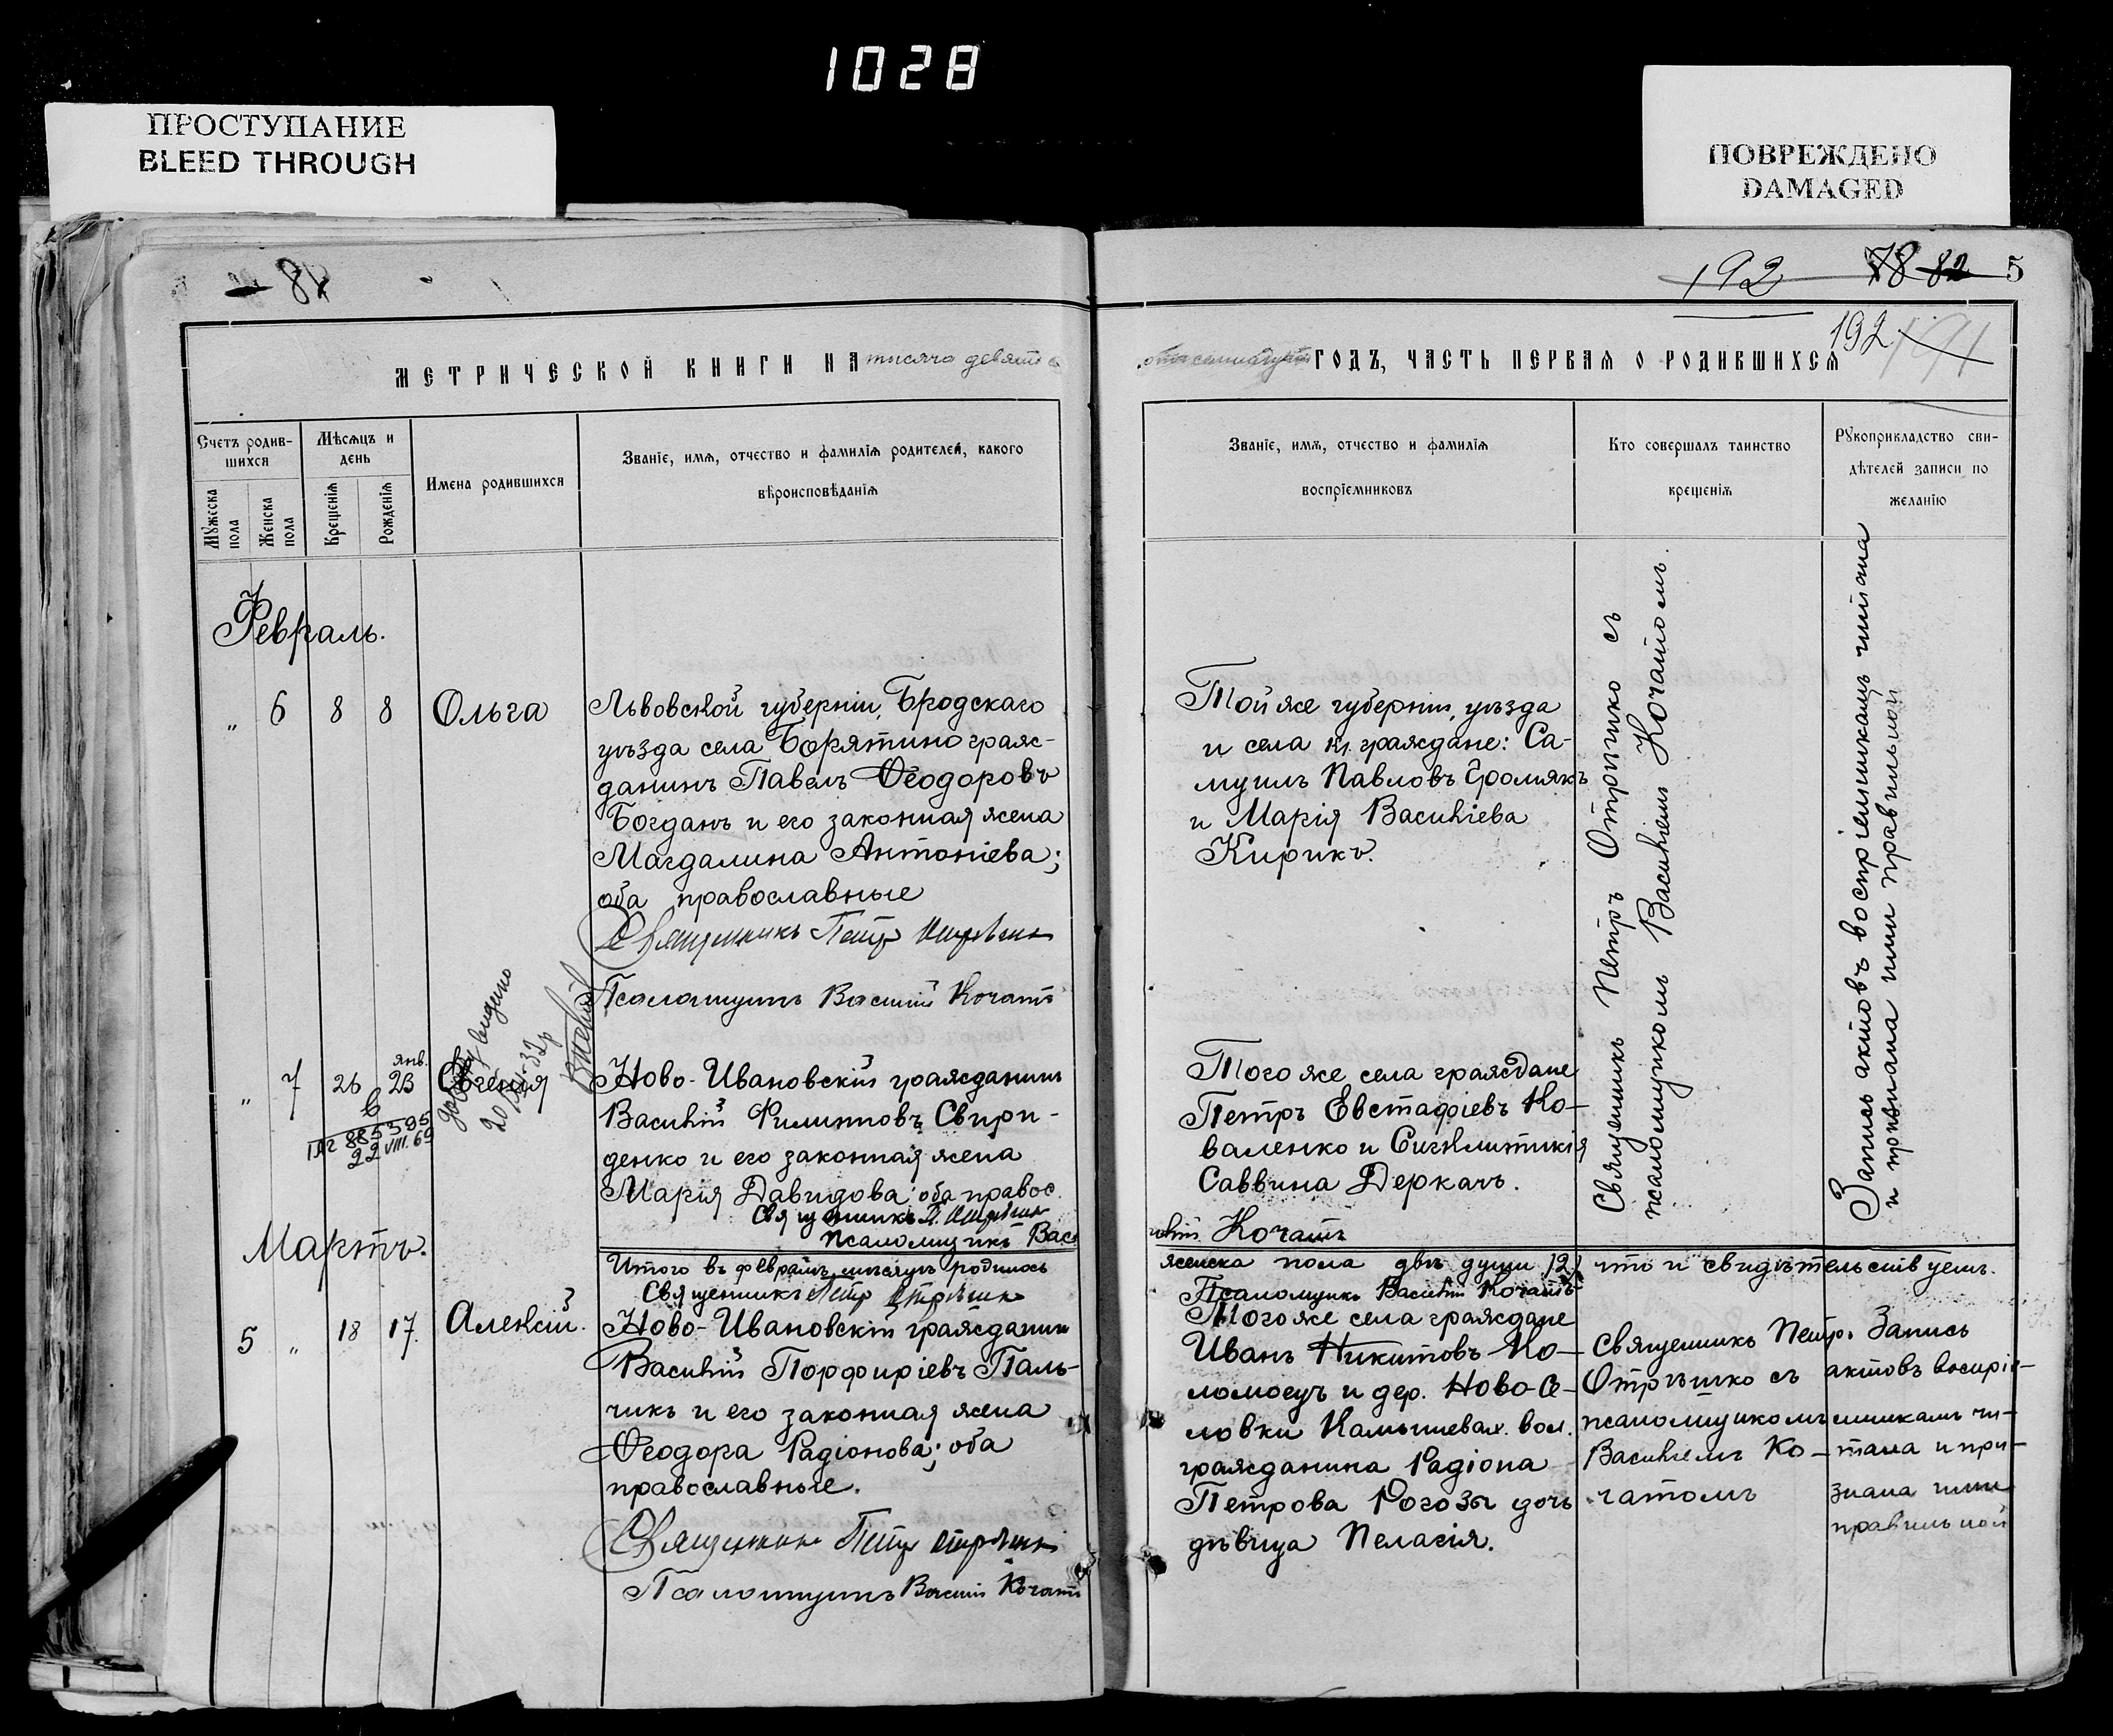 1028
ПРОСТУПАНИЕ
BLEED THROUGH
ПОВРЕЖДЕНО
DAMAGED
192 78 82 5
192
МЕТРИЧЕСКОЙ КНИГИ НА тысяча девятьс
ГОДЪ, ЧАСТЬ ПЕРВАЯ О РОДИВШИХСЯ
Счетъ родив-
шихся
Мѣсяцъ и
день
Мужеска
пола
Женска
пола
Крещенія
Рожденія
Имена родившихся
Званіе, имя, отчество и фамилія родителей, какого
вѣроисповѣданія
Званіе, имя, отчество и фамилія
воспріемниковъ
Кто совершалъ таинство
крещенія
Рукоприкладство сви-
дѣтелей записи по
желанію
Февраль.
„ 6 8 8 Ольга
Львовской губерніи, Бродскаго
уѣзда села Борятино граж-
данинъ Павелъ Ѳеодоровъ
Богданъ и его законная жена
Магдалина Антоніева;
оба православные
Священникъ Петръ
Псаломщикъ Василій Кочатъ
Той же губерніи, уѣзда
и села граждане: Са-
муилъ Павловъ Громякъ
и Марія Василіева
Кирикъ.
Священникъ Петръ Отрѣшко съ
псаломщикомъ Василіемъ Кочатомъ.
Запись актовъ воспріемникамъ читана
и признана ими правильной
„ 7 26 янв. 23 Евгенія
885395
22 VIII. 69
Ново-Ивановскій гражданинъ
Василій Филиповъ Свири-
денко и его законная жена
Марія Давидова; оба правос.
Священникъ П. Отрѣшко
Псаломщикъ Вас
Того же села граждане
Петръ Евстафіевъ Ко-
валенко и Сигклитикія
Саввина Деркачъ.
илій Кочатъ
Итого въ февралѣ мѣсяцѣ родилось
женска пола двѣ души /2/ что и свидѣтельствуемъ.
Священникъ Петръ Отрѣшко
Псаломщикъ Василій Кочатъ
Мартъ.
5 „ 18 17. Алексій.
Ново-Ивановскій гражданинъ
Василій Порфиріевъ Паль-
чикъ и его законная жена
Ѳеодора Радіонова; оба
православные.
Священникъ Петръ Отрѣшко
Псаломщикъ Василій Кочатъ
Того же села граждане
Иванъ Никитовъ Ко-
ломоецъ и дер. Ново-Се-
ловки Камышевах. вол.
гражданина Радіона
Петрова Рогозы дочь
дѣвица Пелагія.
Священникъ Петръ
Отрѣшко съ
псаломщикомъ
Василіемъ Ко-
чатомъ
Запись
актовъ воспріе-
мникамъ чи-
тана и при-
знана ими
правильной